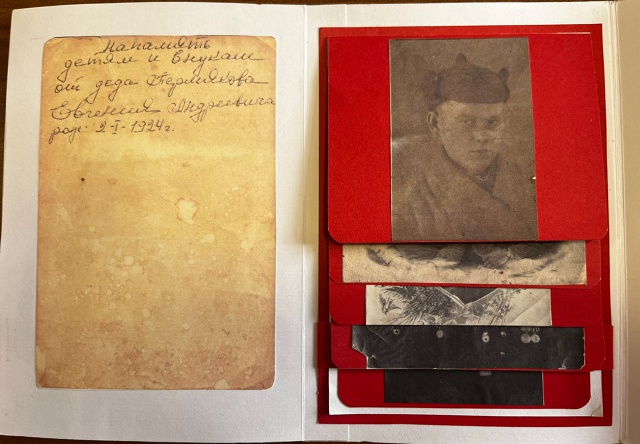 На память
детям и внукам
от деда Пермякова
Евгения Андреевича
род: 2-I-1924г.